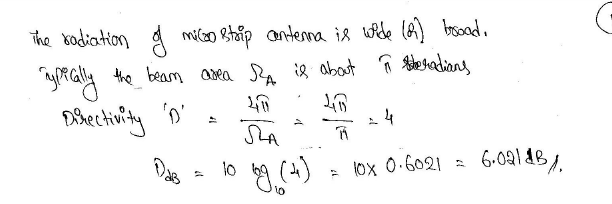 The radiation of microstrip antenna is wide (or) broad.
Typically the beam area Ω_A is about π steradians
Directivity 'D' = 4π/Ω_A = 4π/π = 4
D_dB = 10 log_10 (4) = 10 x 0.6021 = 6.021 dB //.